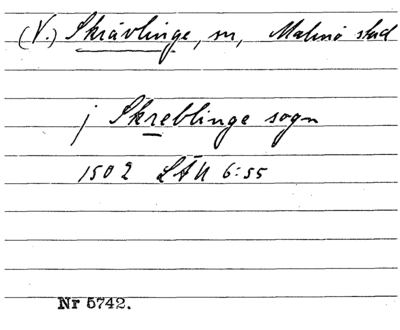 (V.) Skrävlinge, sn, Malmö stad
j Skreblinge sogn
1502 LÄU 6:55
Nr 5742.